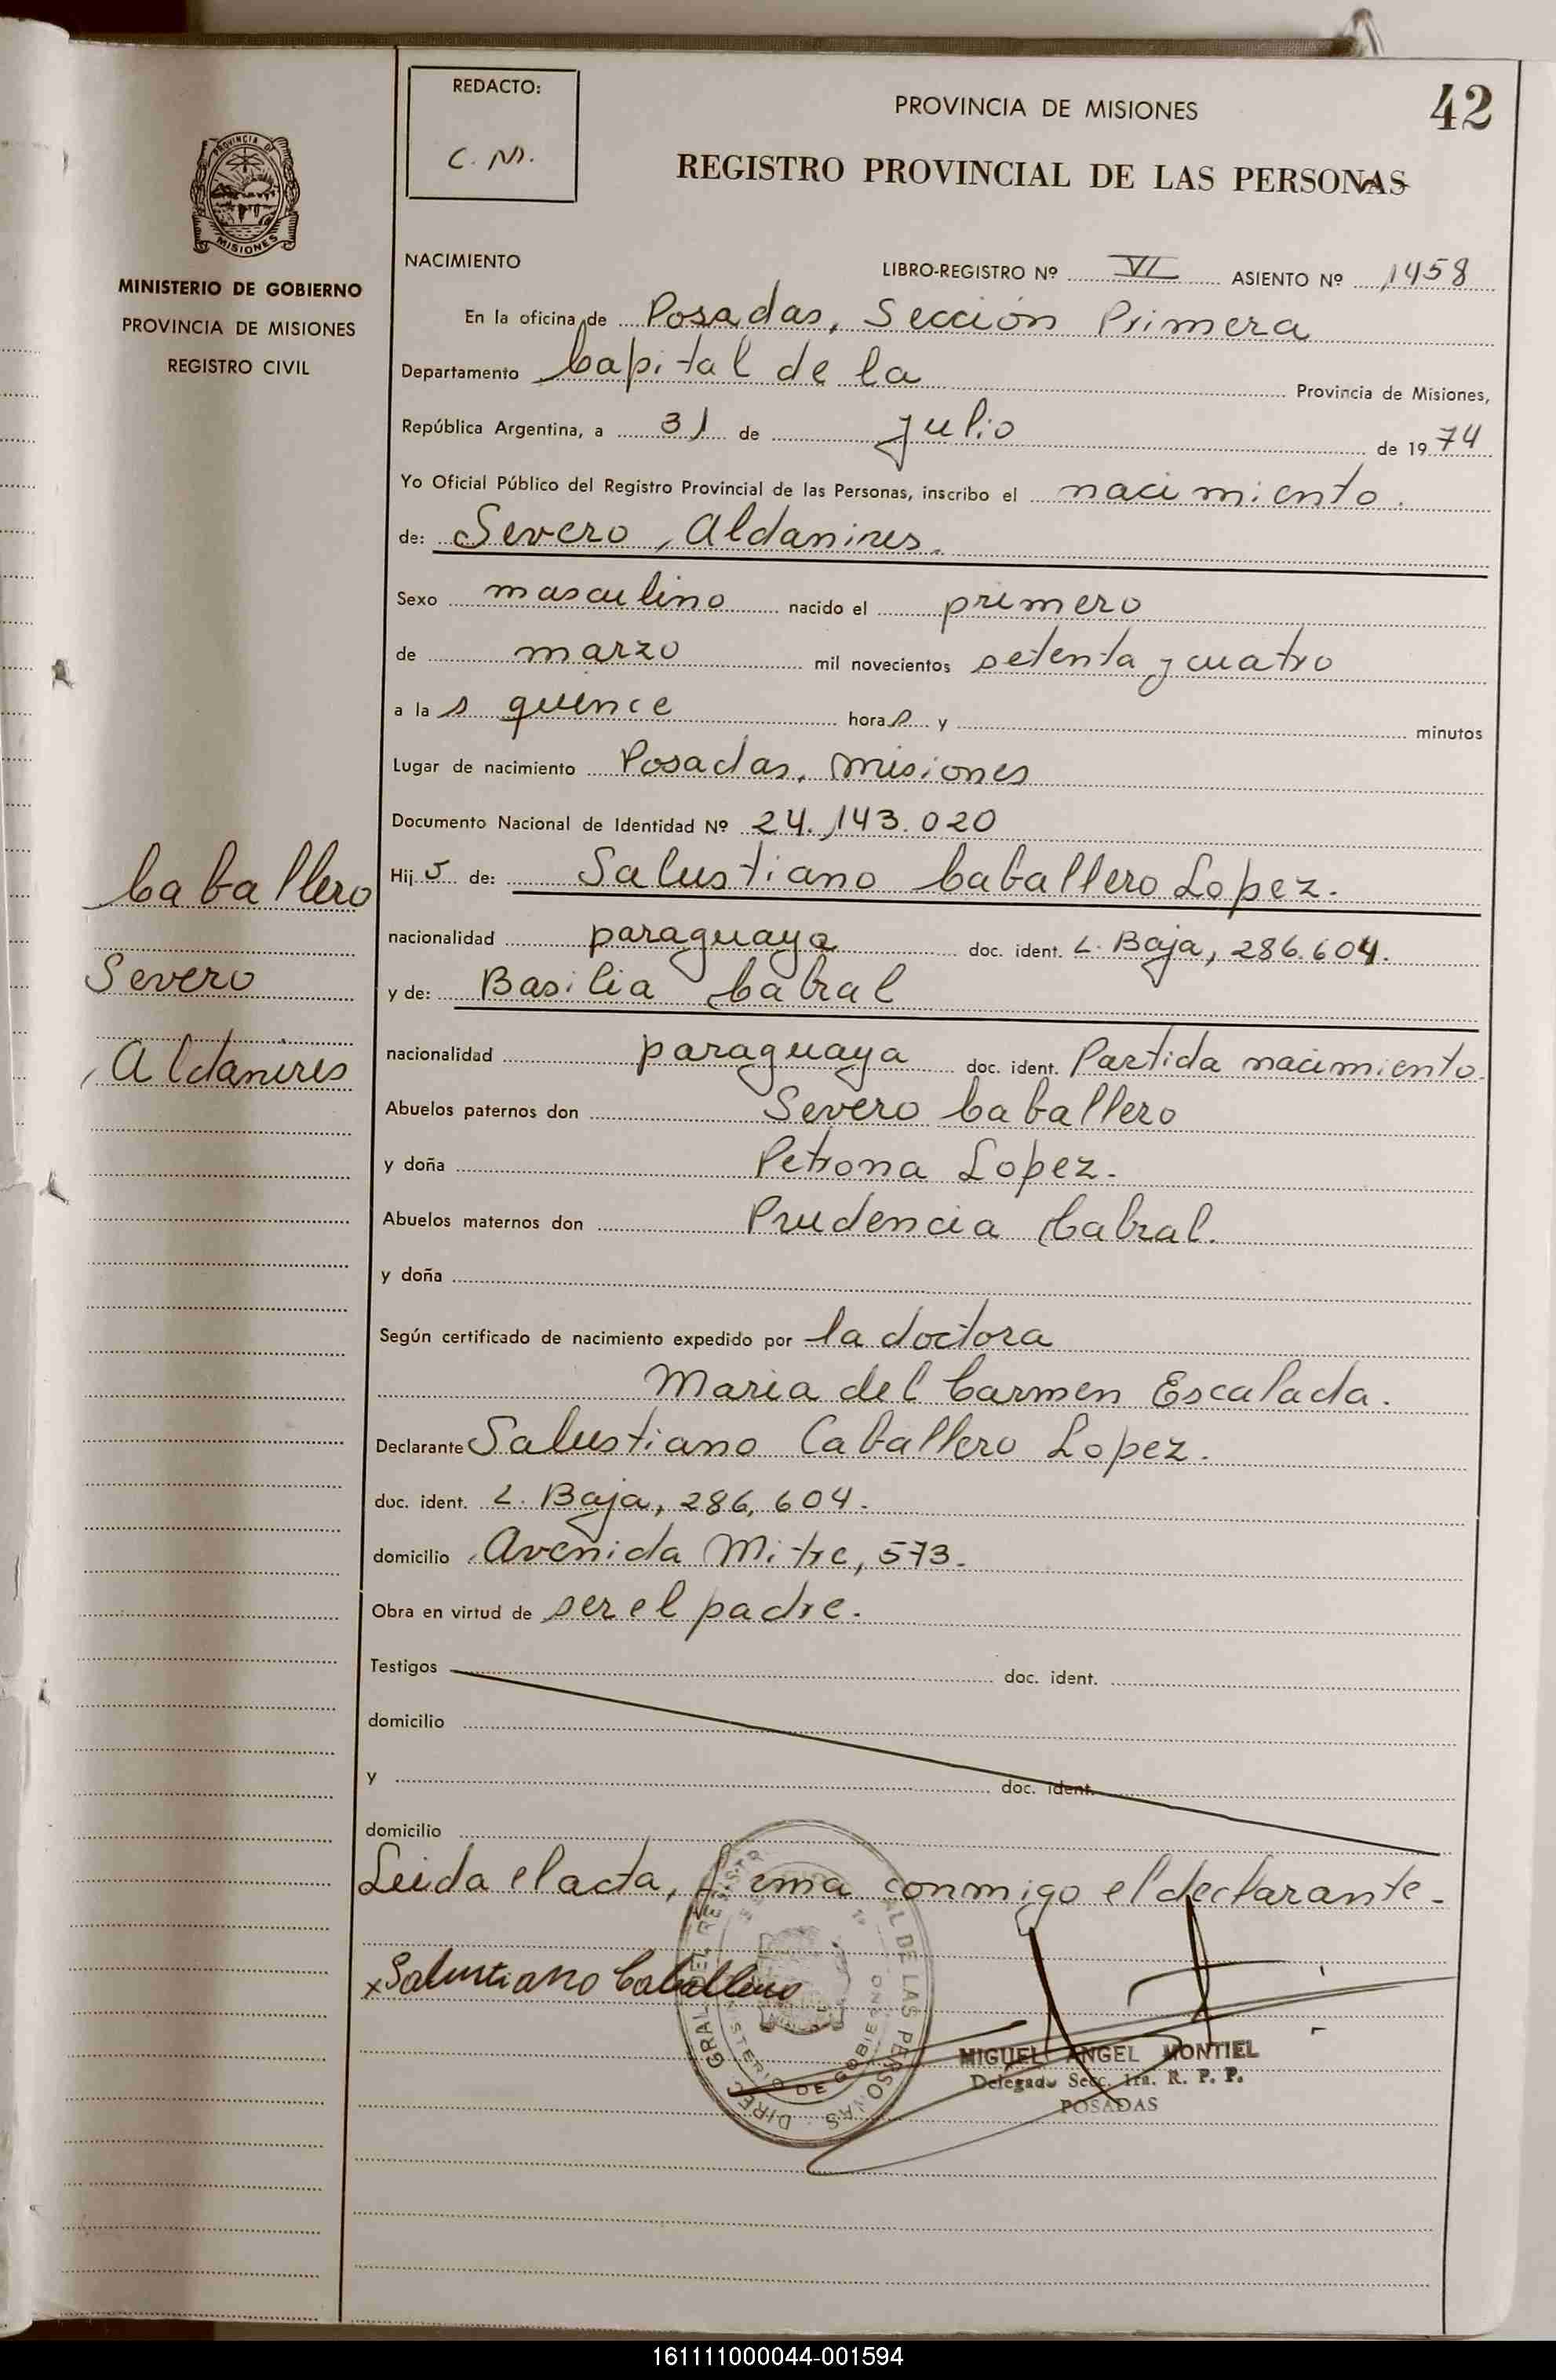 REDACTO:
C. M.
PROVINCIA DE MISIONES
42
REGISTRO PROVINCIAL DE LAS PERSONAS
PROVINCIA DE
MISIONES
MINISTERIO DE GOBIERNO
PROVINCIA DE MISIONES
REGISTRO CIVIL
NACIMIENTO
LIBRO-REGISTRO Nº VI ASIENTO Nº 1458
En la oficina de Posadas, Sección Primera
Departamento Capital de la Provincia de Misiones,
República Argentina, a 31 de Julio de 1974
Yo Oficial Público del Registro Provincial de las Personas, inscribo el nacimiento.
de: Severo Aldanires.
Sexo masculino nacido el primero
de marzo mil novecientos setenta y cuatro
a la s quince hora s y minutos
Lugar de nacimiento Posadas, Misiones
Documento Nacional de Identidad Nº 24.143.020
Hij o de: Salustiano Caballero Lopez.
nacionalidad paraguaya doc. ident. L. Baja, 286.604.
y de: Basilia Cabral
nacionalidad paraguaya doc. ident. Partida nacimiento.
Abuelos paternos don Severo Caballero
y doña Petrona Lopez.
Abuelos maternos don Prudencia Cabral.
y doña
Según certificado de nacimiento expedido por la doctora
Maria del Carmen Escalada.
Declarante Salustiano Caballero Lopez.
doc. ident. L. Baja, 286,604.
domicilio Avenida Mitre, 573.
Obra en virtud de ser el padre.
Testigos doc. ident.
domicilio
y doc. ident.
domicilio
Leida el acta, firma conmigo el declarante.
x Salustiano Caballero
MIGUEL ANGEL MONTIEL
Delegado Secc. 1ra. R. P. P.
POSADAS
Caballero
Severo
Aldanires
161111000044-001594